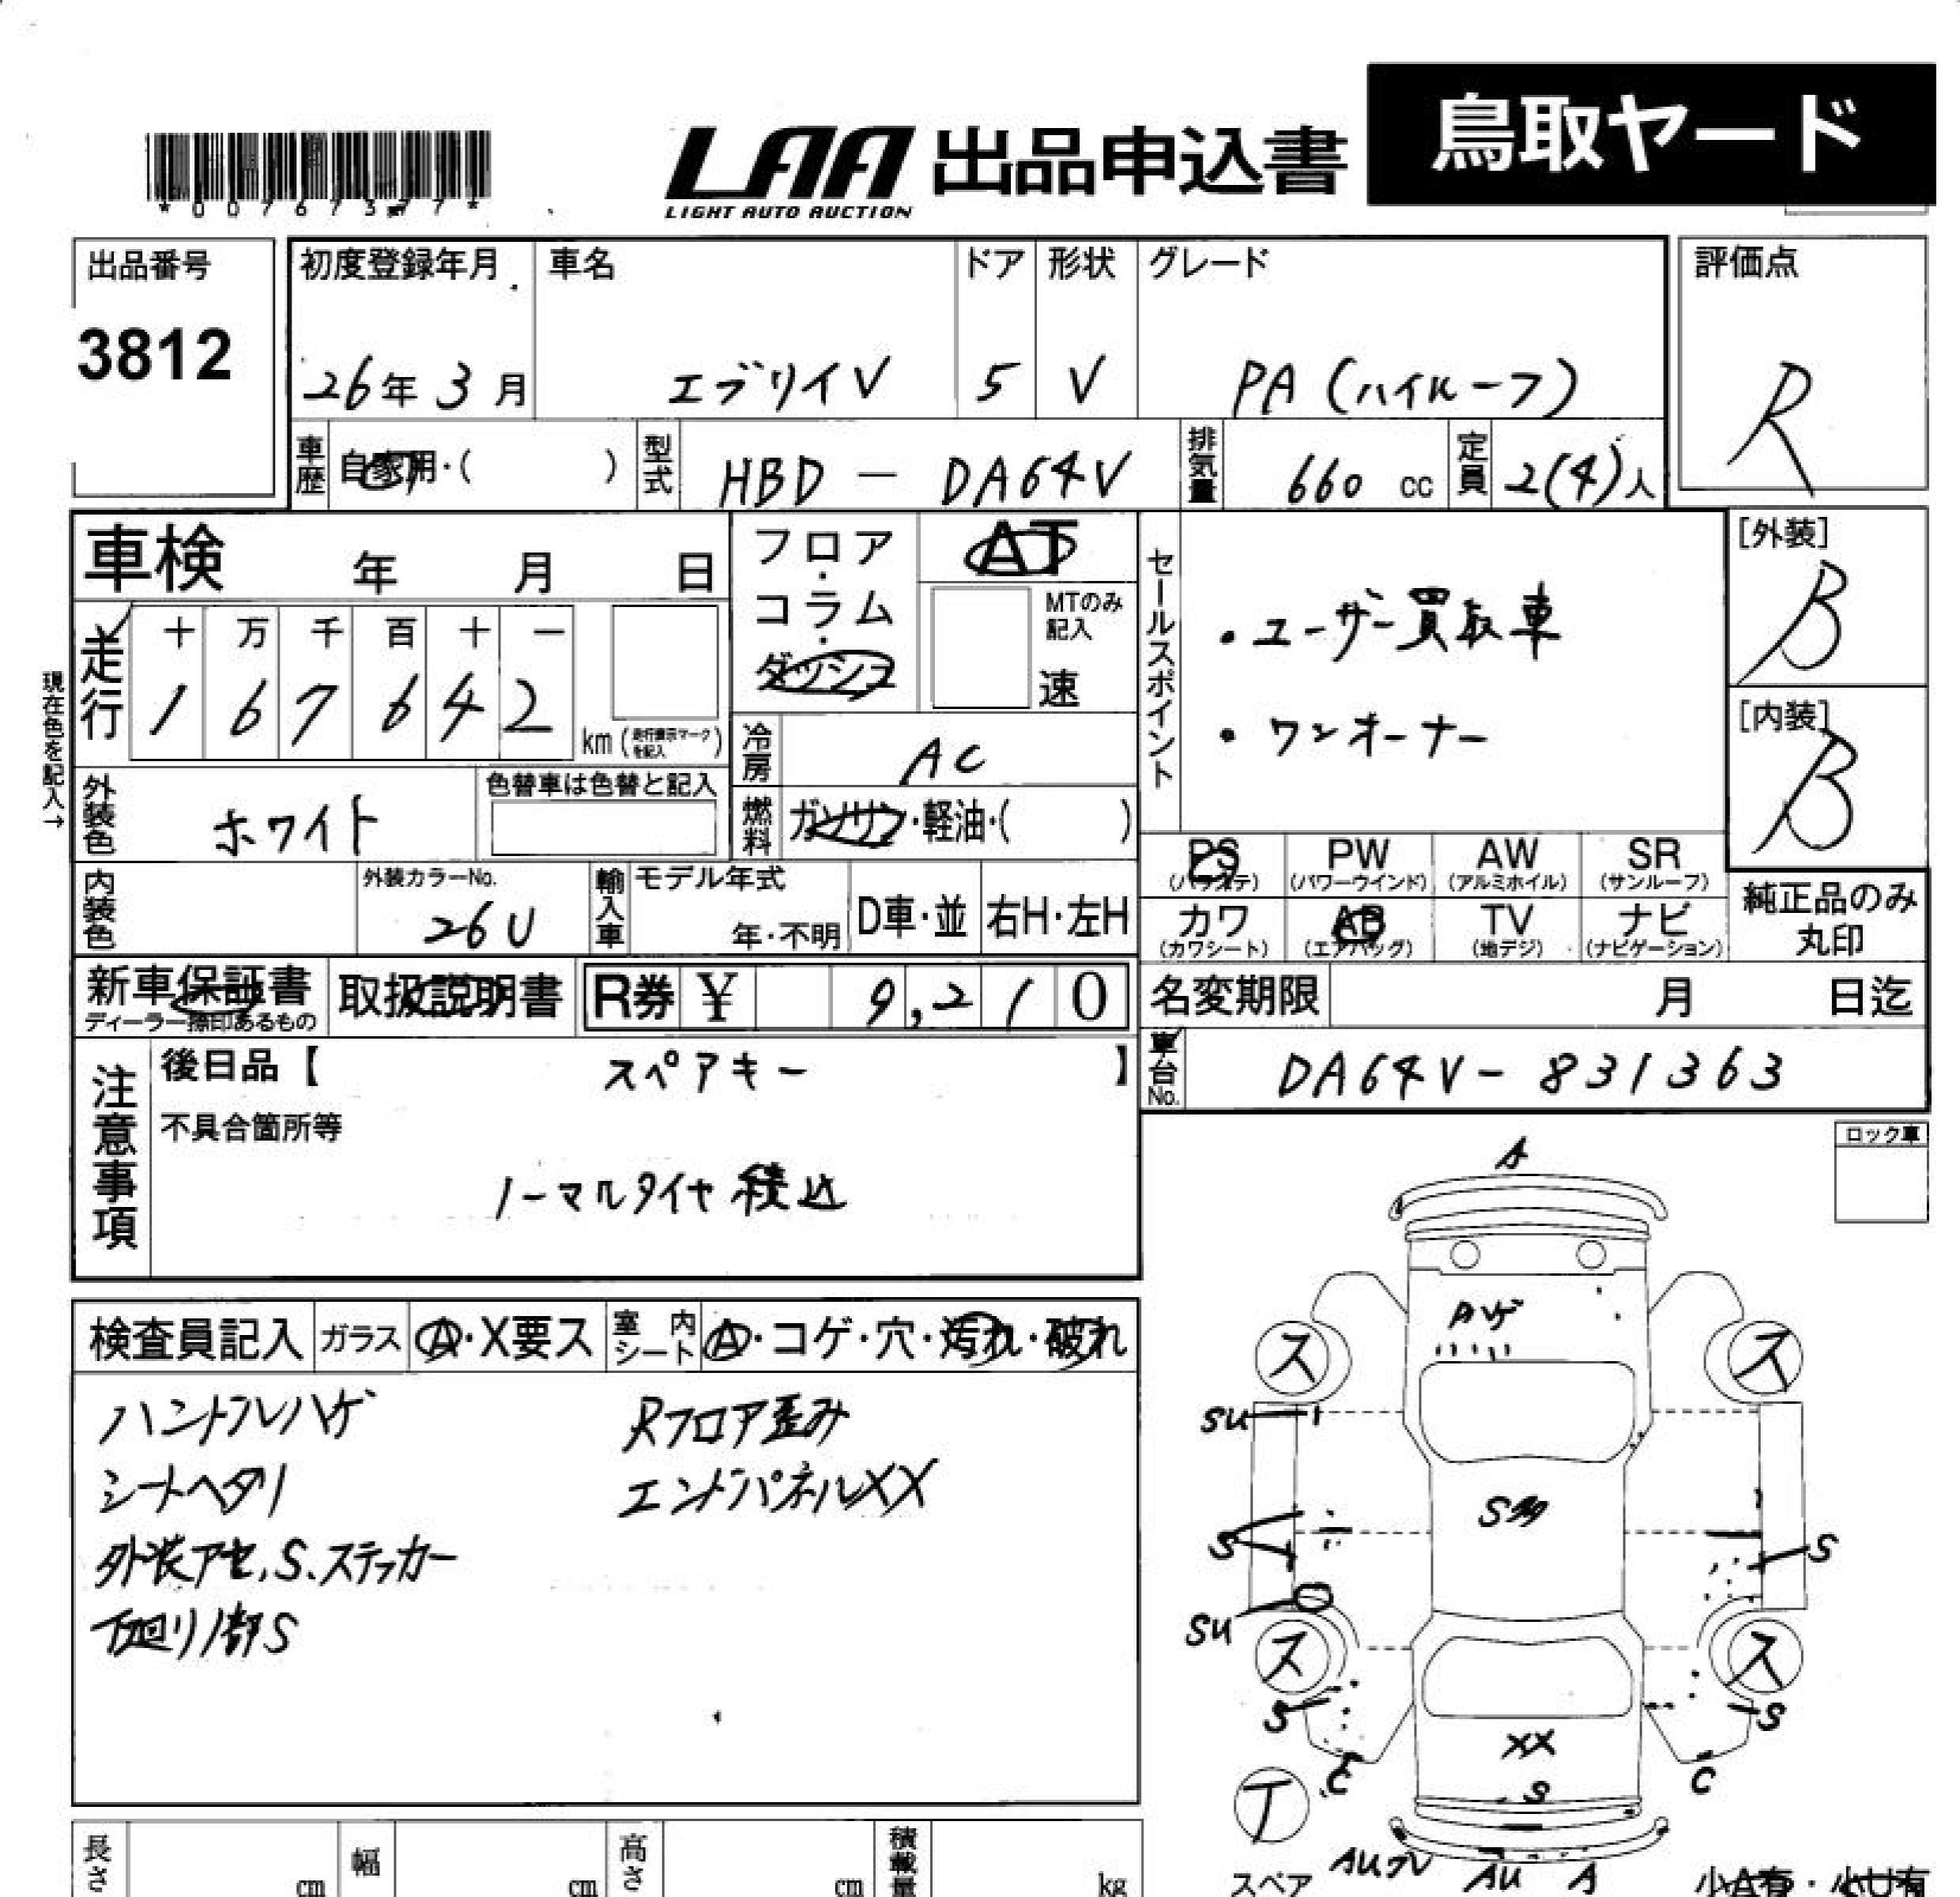 鳥取ヤード
LAA 出品申込書
LIGHT AUTO AUCTION
*00767377*
出品番号
3812
初度登録年月
26年3月
車名
エブリイV
ドア
5
形状
V
グレード
PA (ハイルーフ)
評価点
R
車歴
自家用・( )
型式
HBD - DA64V
排気量
660 cc
定員
2(4)人
車検 年 月 日
フロア・コラム・ダッシュ
AT
MTのみ記入
速
セールスポイント
・ユーザー買取車
・ワンオーナー
[外装]
B
[内装]
B
現在色を記入→
走行
十 万 千 百 十 一
1 6 7 6 4 2
km (走行表示マークを記入)
冷房
AC
外装色
ホワイト
色替車は色替と記入
燃料
ガソリン・軽油・( )
PS (パワステ)
PW (パワーウインド)
AW (アルミホイル)
SR (サンルーフ)
内装色
外装カラーNo.
26U
輸入車
モデル年式
年・不明
D車・並
右H・左H
カワ (カワシート)
AB (エアバッグ)
TV (地デジ)
ナビ (ナビゲーション)
純正品のみ丸印
新車保証書
ディーラー捺印あるもの
取扱説明書
R券 ¥ 9,210
名変期限 月 日迄
車台No.
DA64V-831363
注意事項
後日品【 スペアキー 】
不具合箇所等
ノーマルタイヤ積込
ロック車
検査員記入
ガラス
A・X要ス
室内シート
A・コゲ・穴・汚れ・破れ
ハンドルハゲ
Rフロア歪み
シートヘタリ
エンドパネルXX
外装アセ,S.ステッカー
下廻り1部S
A
Aハゲ
ス
ス
SU
S多
S
S
SU
ス
ス
S
S
XX
C
C
S
T
スペア
AUワレ
AU
A
小A有・小U有
長さ
cm
幅
cm
高さ
cm
積載量
kg